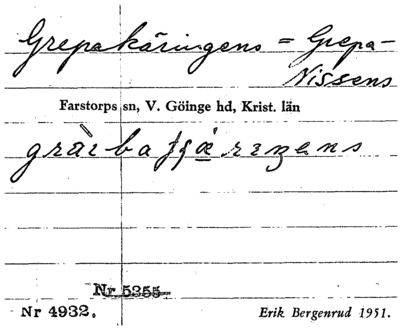 Grepakäringens = Grepa-
Nissens
Farstorps sn, V. Göinge hd, Krist. län
Nr 5355
Nr 4932.
Erik Bergenrud 1951.